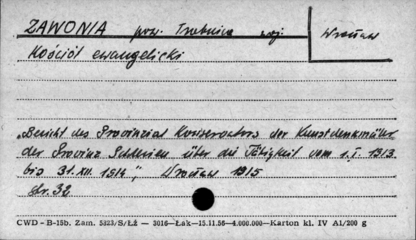 ZAWONIA pow. Trzebnica woj. Wrocław
Kościół ewangelicki
"Bericht des Provinzial Konservators der Kunstdenkmäler
der Provinz Schlesien über die Tätigkeit vom 1.I.1913
bis 31.XII.1914", Wrocław 1915
str. 32
CWD - B-15b. Zam. 5323/S/ŁŻ — 3016—Łak—15.11.56—4.000.000—Karton kl. IV A1/200 g